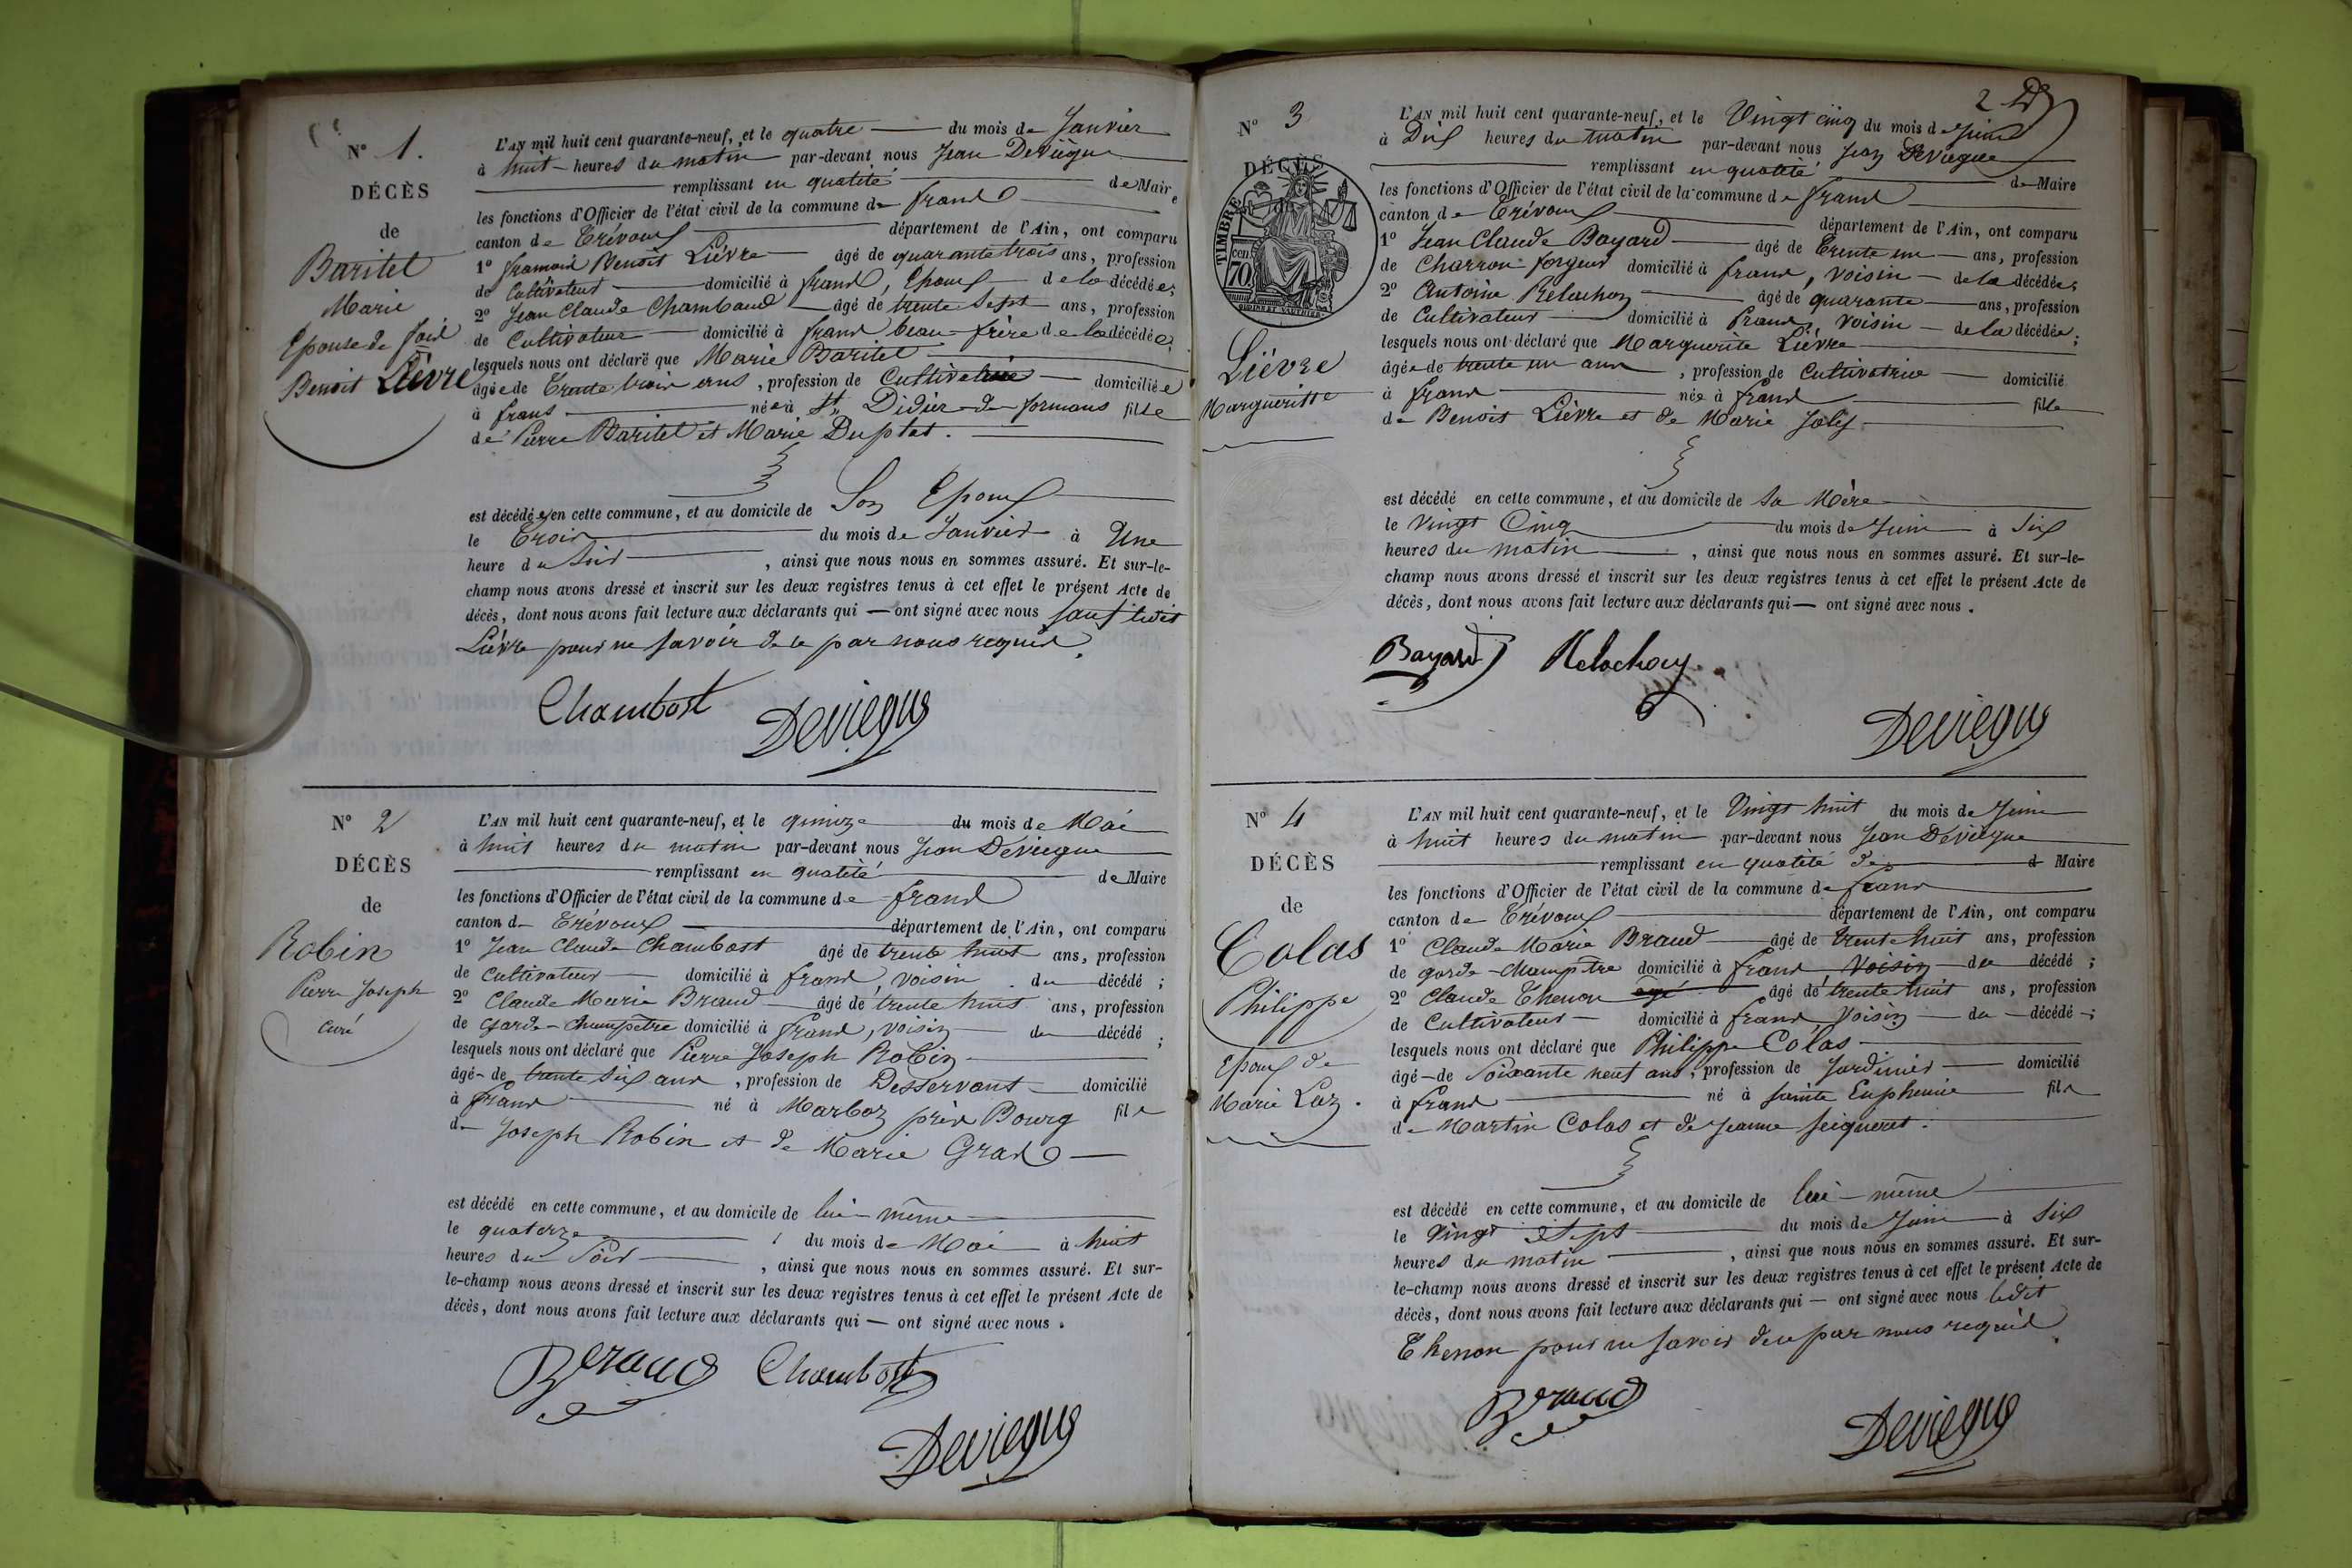 N° 1.
DÉCÈS
de
Baritel
Marie
Epouse de
Benoit Lièvre
L'AN mil huit cent quarante-neuf, et le quatre du mois de Janvier
à huit heures du matin par-devant nous Jean Deviégue
remplissant en qualité de Maire
les fonctions d'Officier de l'état civil de la commune de frans
canton de Trévoux département de l'Ain, ont comparu
1° Benoit Lièvre âgé de quarante trois ans, profession
de Cultivateur domicilié à frans, Epoux de la décédée;
2° Jean Claude Chambaud âgé de trente Sept ans, profession
de Cultivateur domicilié à frans beau-frère de la décédée;
lesquels nous ont déclaré que Marie Baritel
âgée de Trente trois ans, profession de Cultivatrice domiciliée
à frans née à St Didier de formans fille
de Pierre Baritel et Marie Duplat.
est décédée en cette commune, et au domicile de Son Epoux
le Trois du mois de Janvier à Une
heure du Soir, ainsi que nous nous en sommes assuré. Et sur-le-
champ nous avons dressé et inscrit sur les deux registres tenus à cet effet le présent Acte de
décès, dont nous avons fait lecture aux déclarants qui — ont signé avec nous sauf ledit
Lièvre pour ne savoir de ce par nous requis.
Chambost Deviegue
N° 2
DÉCÈS
de
Robin
Pierre Joseph
Curé
L'AN mil huit cent quarante-neuf, et le quinze du mois de Mai
à huit heures du matin par-devant nous Jean Deviegue
remplissant en qualité de Maire
les fonctions d'Officier de l'état civil de la commune de frans
canton de Trévoux département de l'Ain, ont comparu
1° Jean Claude Chambost âgé de trente huit ans, profession
de Cultivateur domicilié à frans, voisin du décédé;
2° Claude Marie Braud âgé de trente huit ans, profession
de Garde-champêtre domicilié à frans, voisin du décédé;
lesquels nous ont déclaré que Pierre Joseph Robin
âgé de trente Six ans, profession de Desservant domicilié
à frans né à Marboz près Bourg fils
de Joseph Robin et de Marie Gras
est décédé en cette commune, et au domicile de lui-même
le quatorze du mois de Mai à huit
heures du Soir, ainsi que nous nous en sommes assuré. Et sur-
le-champ nous avons dressé et inscrit sur les deux registres tenus à cet effet le présent Acte de
décès, dont nous avons fait lecture aux déclarants qui — ont signé avec nous.
Beraud Chambost
Deviegue
2
N° 3
DÉCÈS
TIMBRE
70 cen.
Lièvre
Margueritte
L'AN mil huit cent quarante-neuf, et le Vingt cinq du mois de Juin
à Dix heures du matin par-devant nous Jean Deviegue
remplissant en qualité de Maire
les fonctions d'Officier de l'état civil de la commune de frans
canton de Trévoux département de l'Ain, ont comparu
1° Jean Claude Bayard âgé de Trente un ans, profession
de Charron forgeur domicilié à frans, voisin de la décédée;
2° Antoine Relachon âgé de quarante ans, profession
de Cultivateur domicilié à frans, voisin de la décédée;
lesquels nous ont déclaré que Marguerite Lièvre
âgée de trente un ans, profession de Cultivatrice domicilié
à frans née à frans fille
de Benoit Lièvre et de Marie Joly
est décédé en cette commune, et au domicile de Sa Mère
le vingt Cinq du mois de Juin à Six
heures du matin, ainsi que nous nous en sommes assuré. Et sur-le-
champ nous avons dressé et inscrit sur les deux registres tenus à cet effet le présent Acte de
décès, dont nous avons fait lecture aux déclarants qui — ont signé avec nous.
Bayard Relachon
Deviegue
N° 4
DÉCÈS
de
Colas
Philippe
Epoux de
Marie Laz.
L'AN mil huit cent quarante-neuf, et le Vingt huit du mois de Juin
à huit heures du matin par-devant nous Jean Deviegue
remplissant en qualité de d Maire
les fonctions d'Officier de l'état civil de la commune de frans
canton de Trévoux département de l'Ain, ont comparu
1° Claude Marie Braud âgé de trente huit ans, profession
de garde-champêtre domicilié à frans, Voisin du décédé;
2° Claude Thenon agé âgé de trente huit ans, profession
de Cultivateur domicilié à frans, Voisin du décédé;
lesquels nous ont déclaré que Philippe Colas
âgé de Soixante neuf ans, profession de Jardinier domicilié
à frans né à Sainte Euphemie fils
de Martin Colas et de Jeanne Seigneret.
est décédé en cette commune, et au domicile de lui-même
le Vingt Sept du mois de Juin à Six
heures du matin, ainsi que nous nous en sommes assuré. Et sur-
le-champ nous avons dressé et inscrit sur les deux registres tenus à cet effet le présent Acte de
décès, dont nous avons fait lecture aux déclarants qui — ont signé avec nous ledit
Thenon pour ne savoir de ce par nous requis.
Beraud
Deviegue